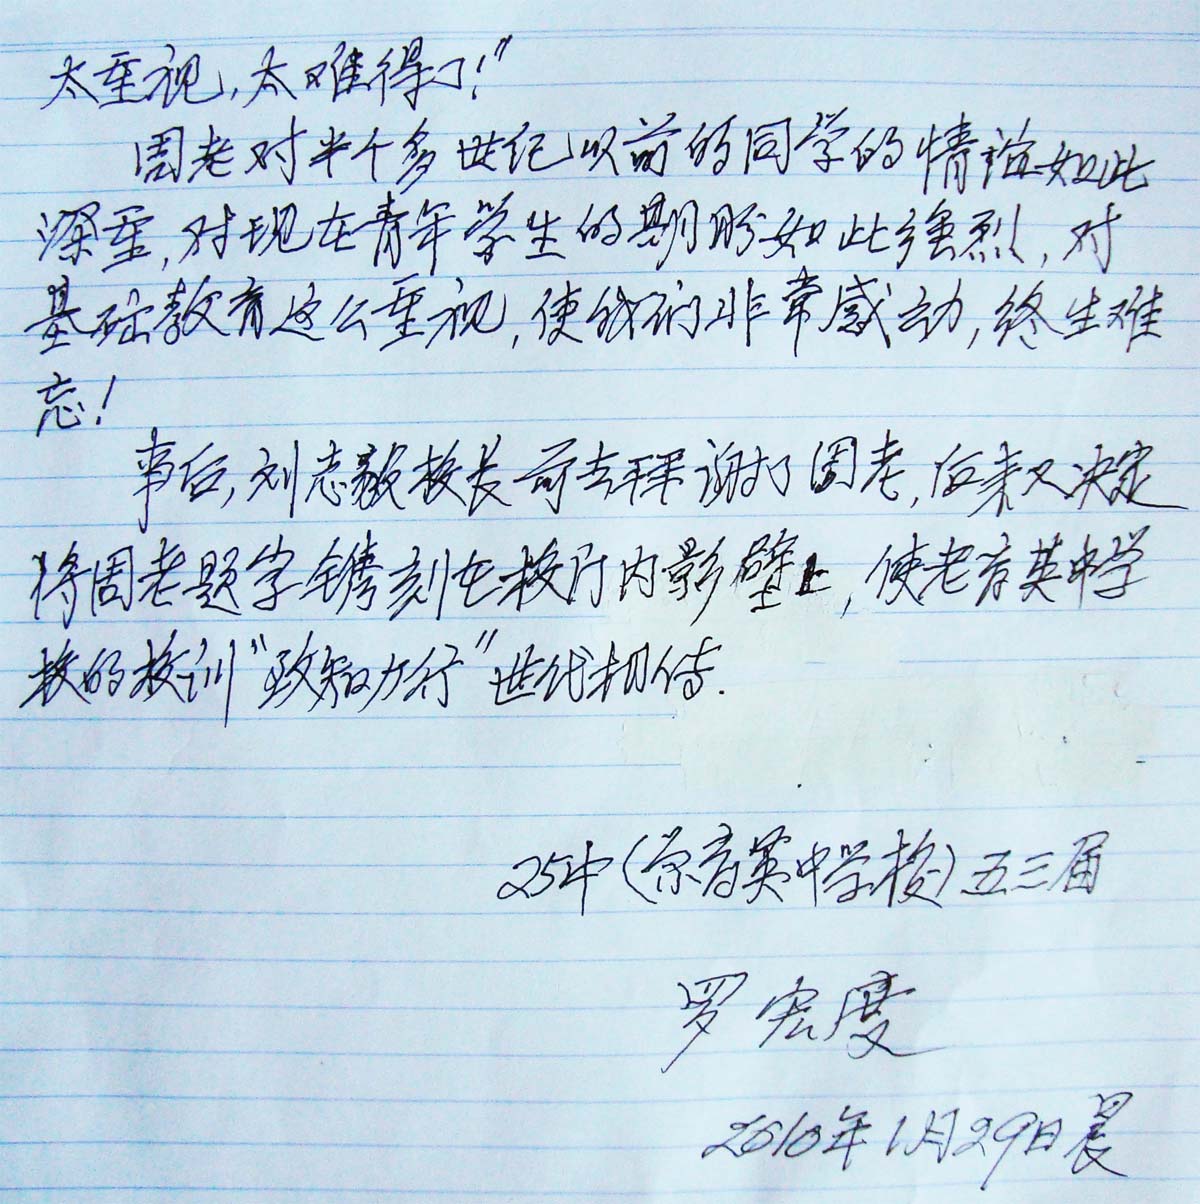 太重视,太难得了!”
周老对半个多世纪以前的同学的情谊如此
深重,对现在青年学生的期盼如此强烈,对
基础教育这么重视,使我们非常感动,终生难
忘!
事后,刘志毅校长去拜谢了周老,后来又决定
将周老题字镌刻在校门内影壁上,使老育英中学
校的校训“致知力行”世代相传.
25中(原育英中学校)五三届
罗宏度
2010年1月29日晨